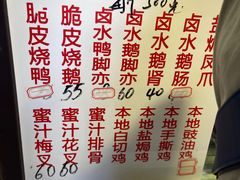 脆皮烧鸭
脆皮烧鹅
55
卤水鸭脚亦
60
卤水鹅脚亦
40
卤水鹅肾
卤水鹅肠
盐焗凤爪
蜜汁梅叉
60
蜜汁花叉
60
蜜汁排骨
本地白切鸡
本地盐焗鸡
本地手撕鸡
本地豉油鸡